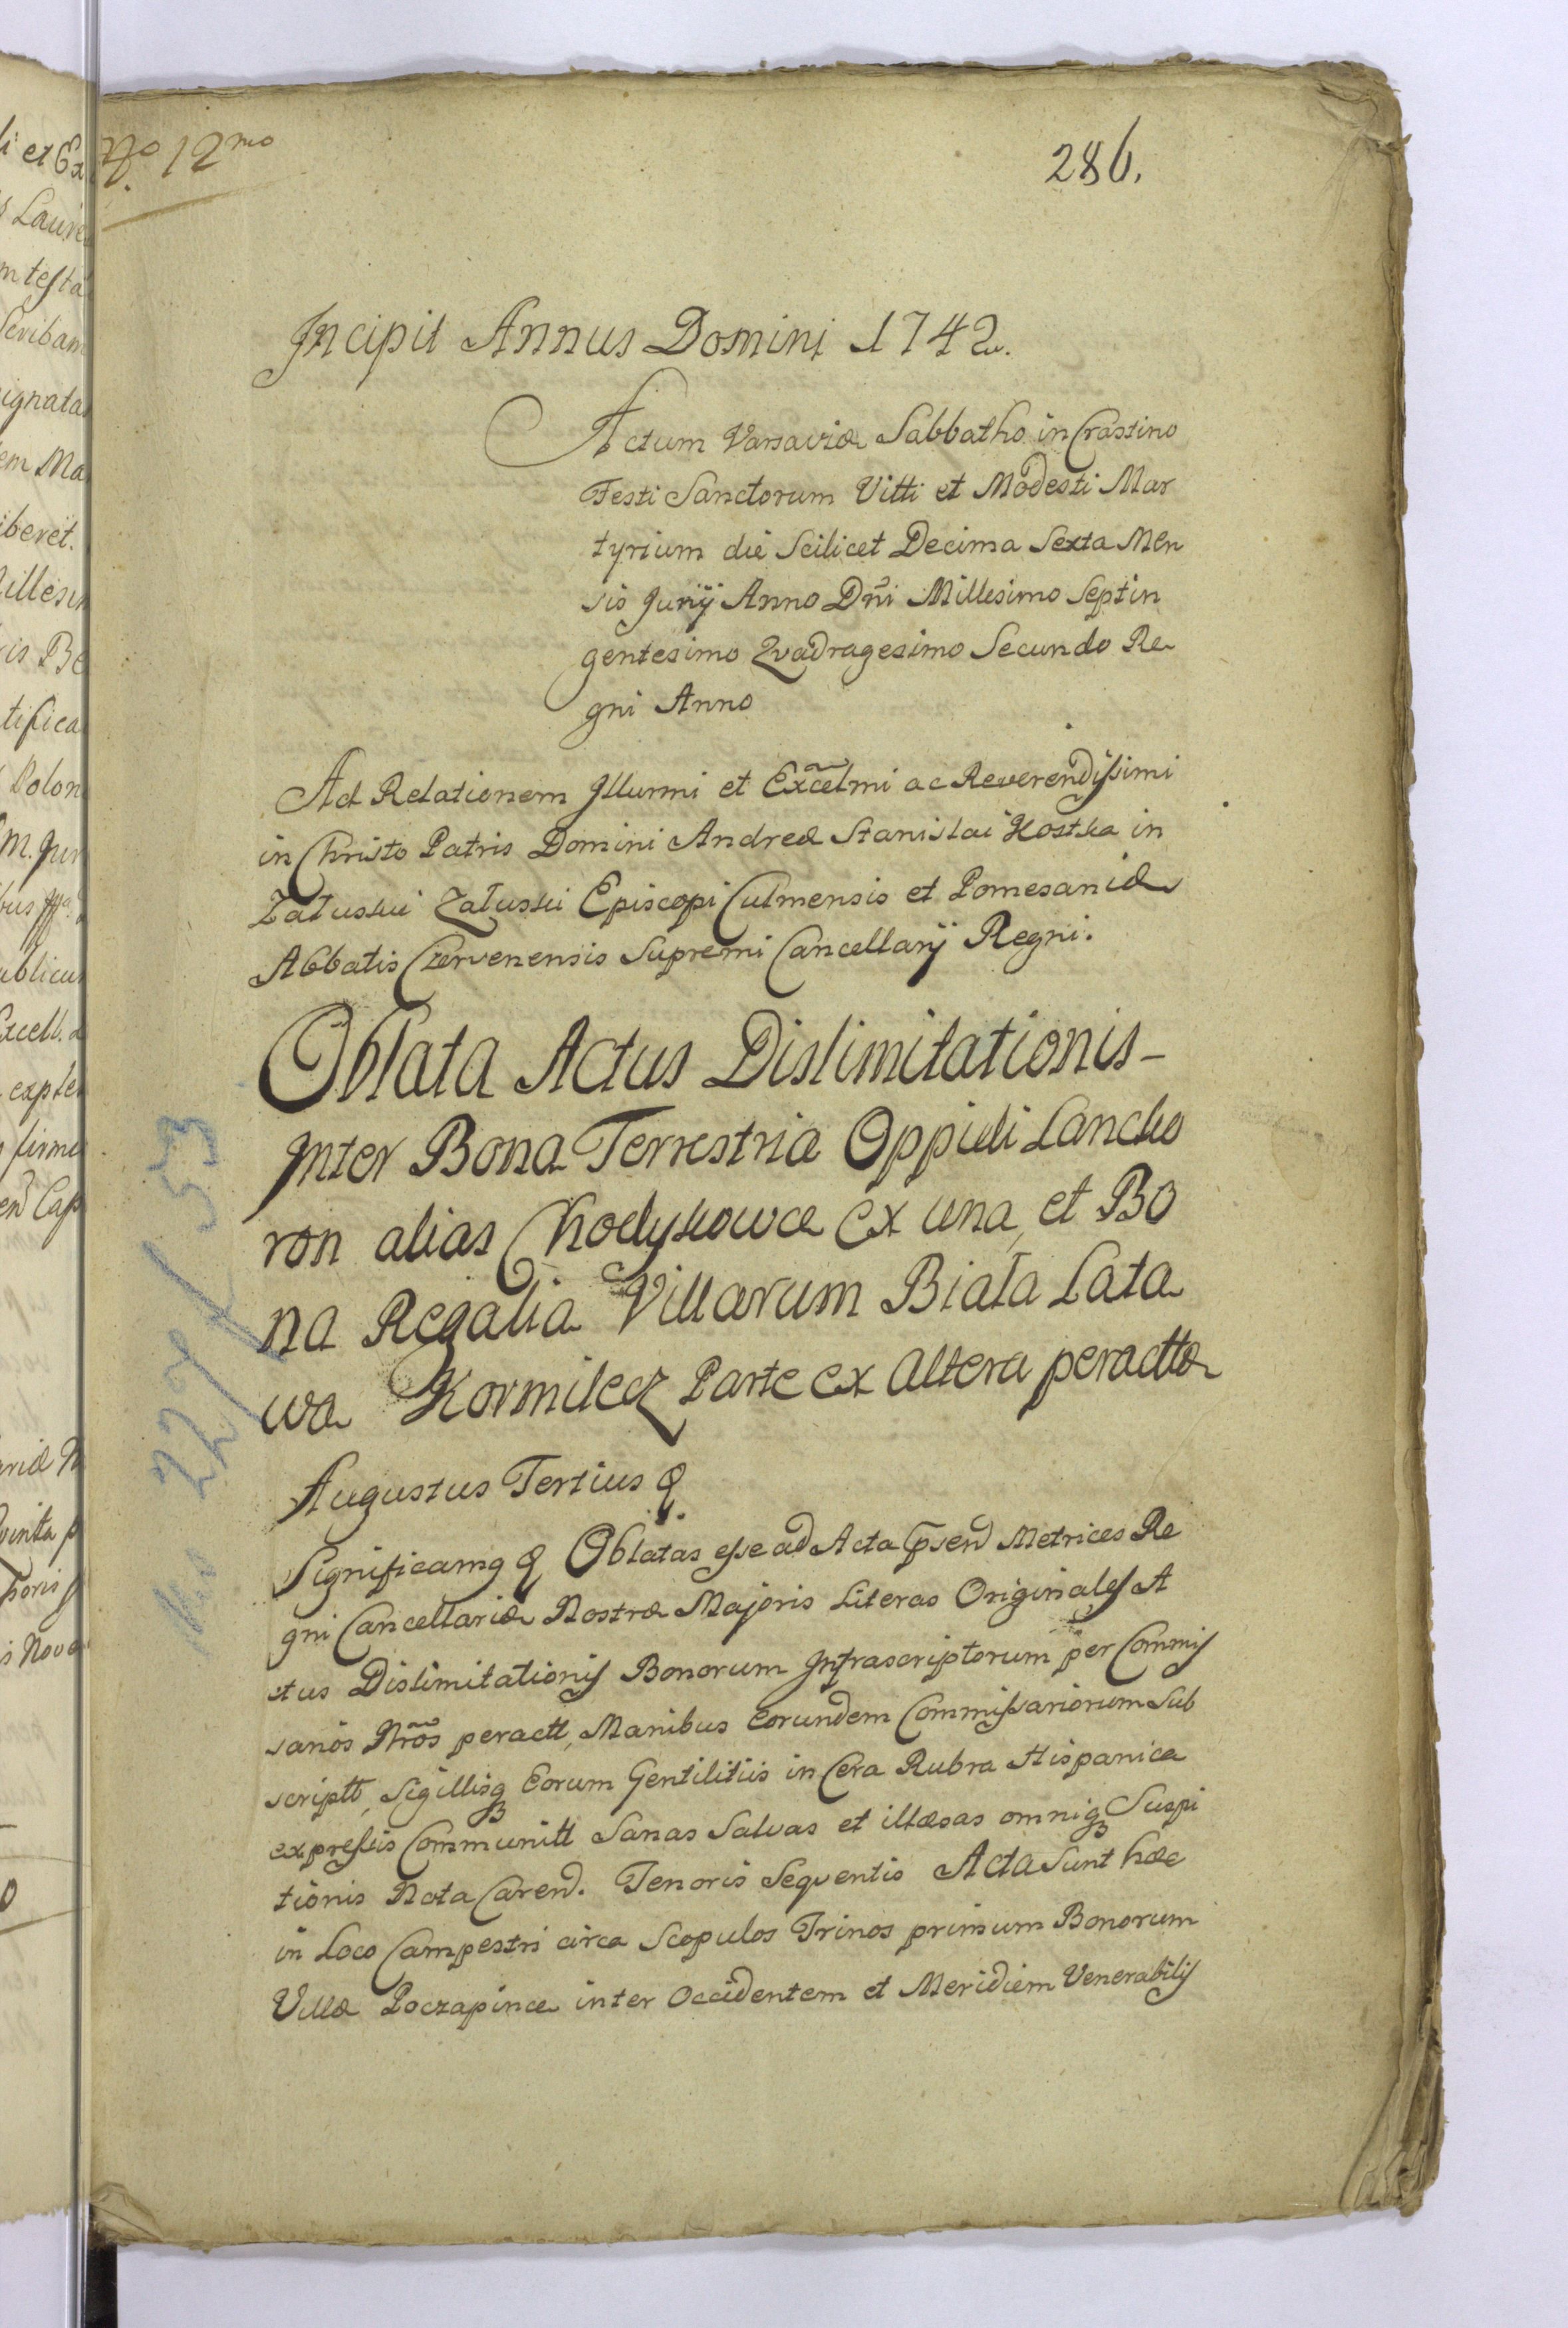 No 12mo
286.
Incipit Annus Domini 1742.
Actum Varsaviæ Sabbatho in Crastino
Festi Sanctorum Vitti et Modesti Mar
tyrium die Scilicet Decima Sexta Men
sis Junij Anno Dñi Millesimo Septin
gentesimo Qvadragesimo Secundo Re
gni Anno
Ad Relationem Illumi et Excelmi ac Reverendissimi
in Christo Patris Domini Andreæ Stanislai Kostka in
Załuskie Załuski Episcopi Culmensis et Pomesaniæ
Abbatis Czervenensis Supremi Cancellarij Regni.
Oblata Actus Dislimitationis
Inter Bona Terrestria Oppidi Lancko
ron alias Chodykowce ex una, et Bo
na Regalia Villarum Biała Lata
wa Kormilecz Parte ex Altera peractæ
Augustus Tertius &.
Significamq & Oblatas esse ad Acta pñsen Metrices Re
gni Cancellariæ Nostræ Majoris Literas Originales A
ctus Dislimitationis Bonorum Infrascriptorum per Commis
sarios Nrõs peractt, Manibus Eorundem Commissariorum Sub
scriptt, Sigillisq Eorum Gentilitiis in Cera Rubra Hispanica
expressis Communitt Sanas Salvas et illæsas omniq Suspi
tionis Nota Caren. Tenoris Seqventis Acta Sunt hæc
in Loco Campestri circa Scopulos Trinos primum Bonorum
Villæ Poczapince inter Occidentem et Meridiem Venerabilis